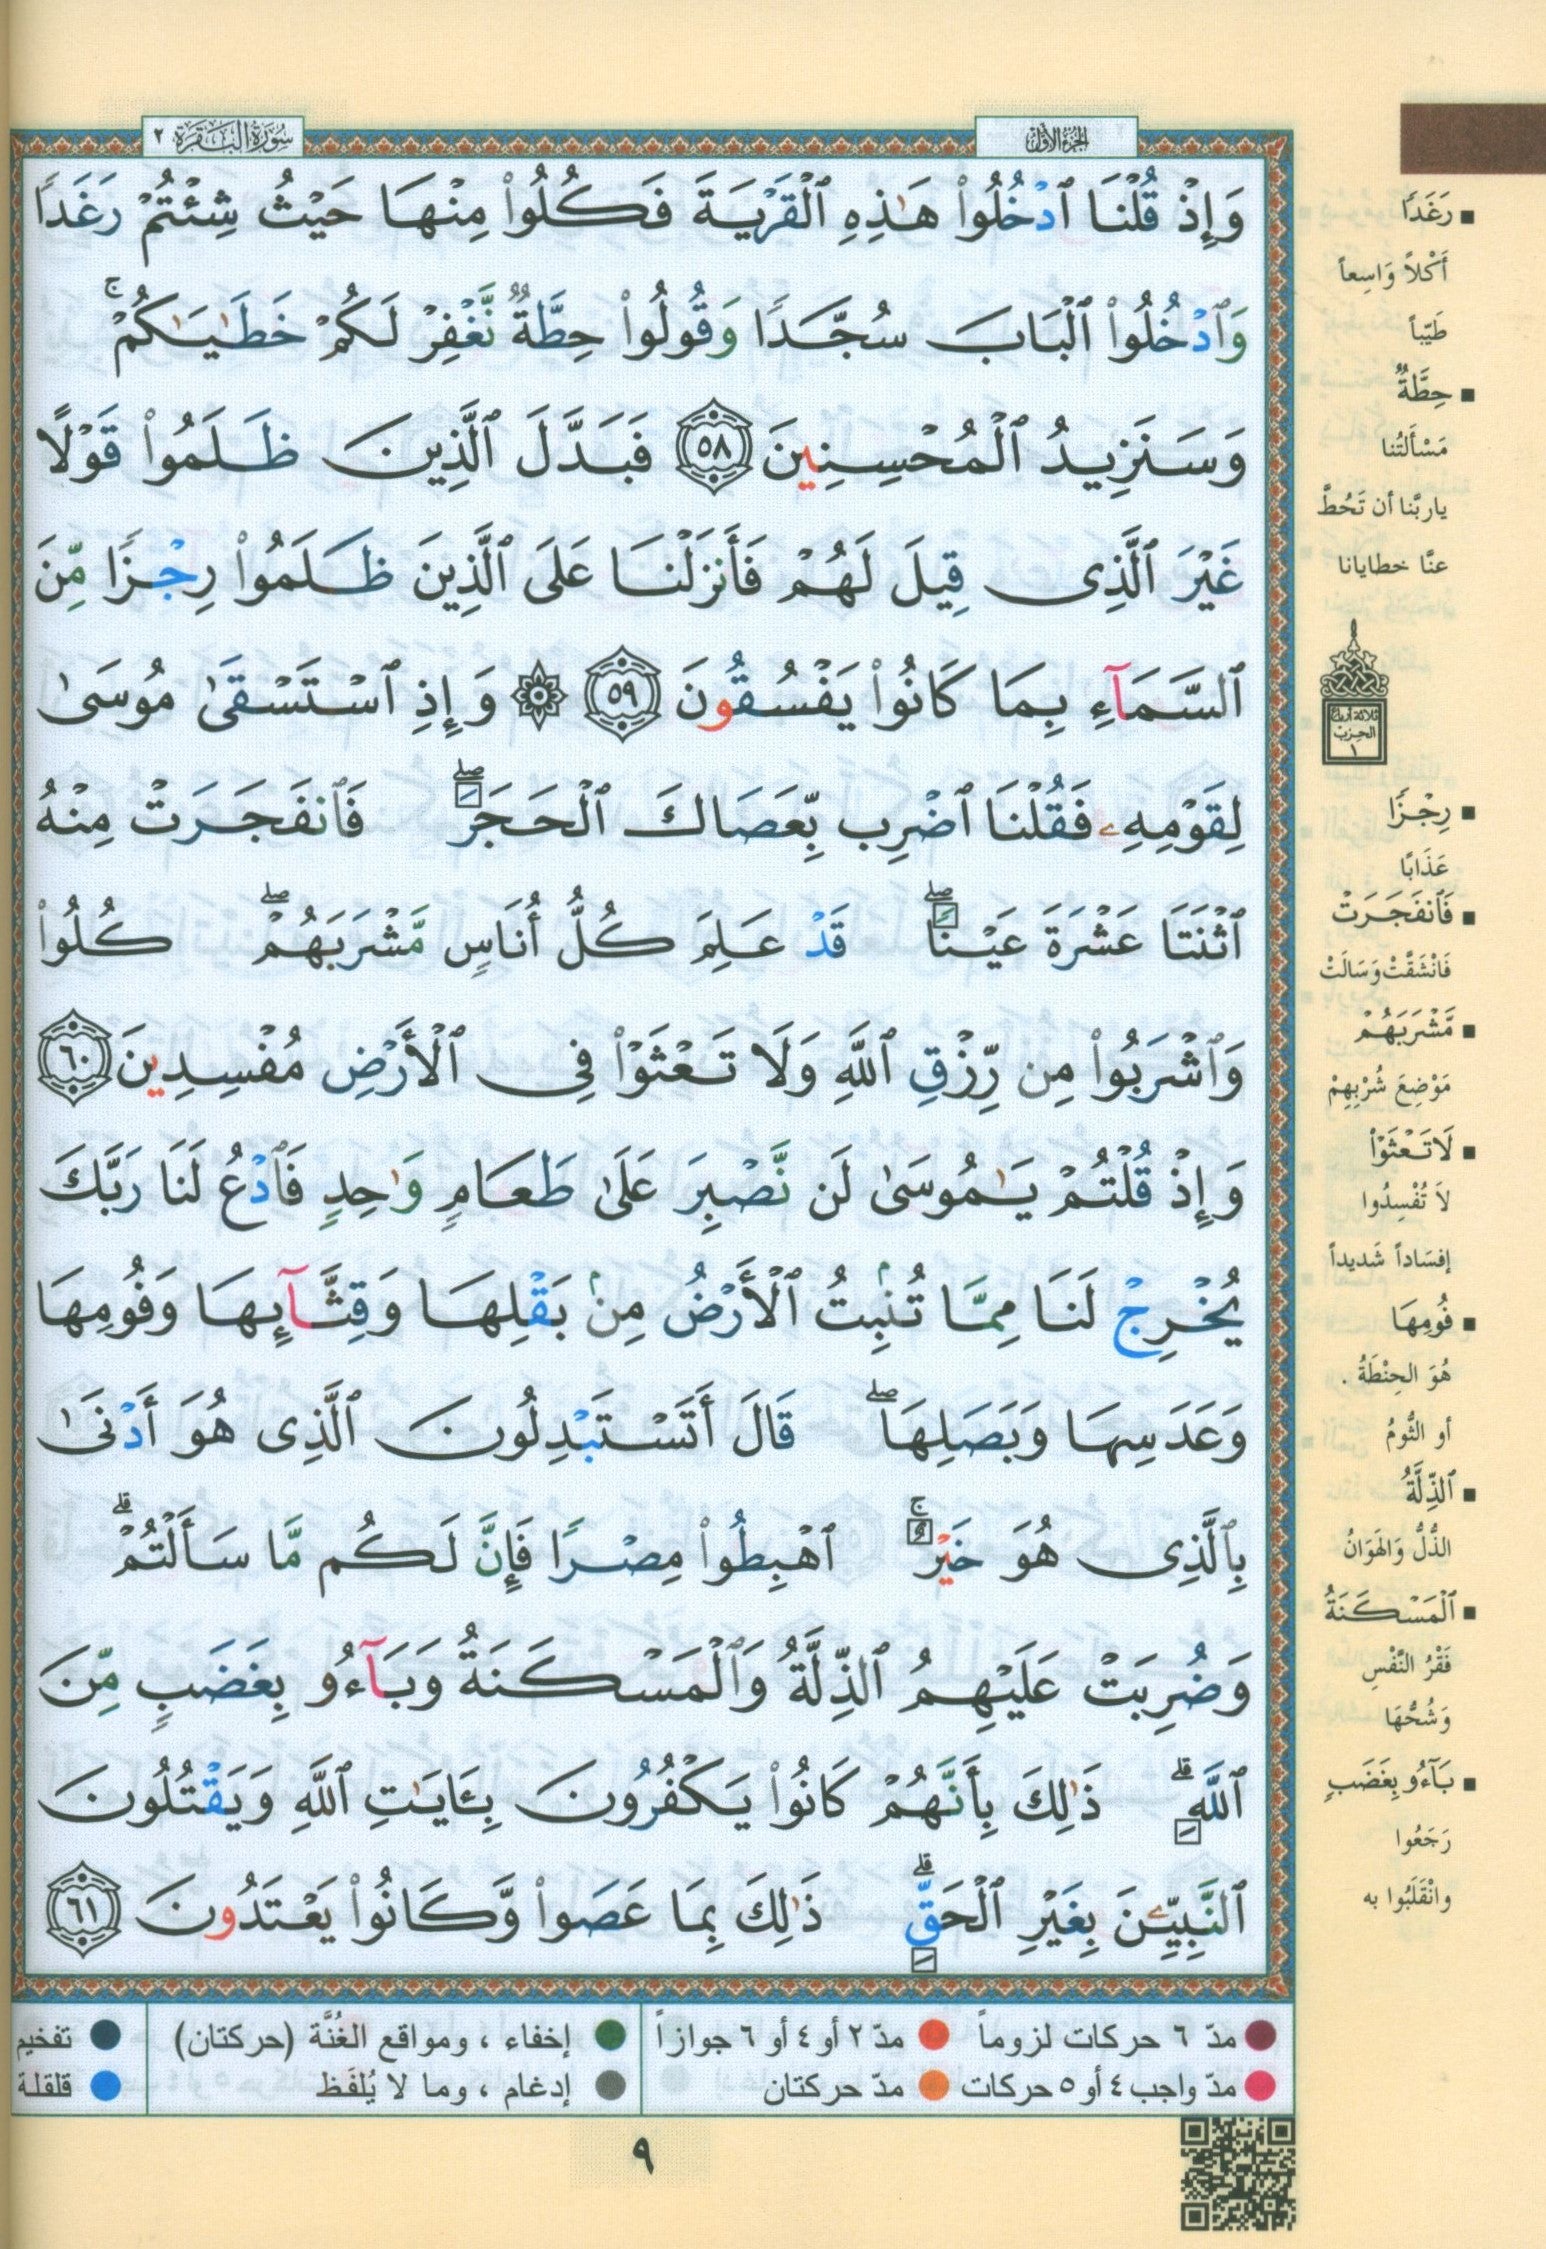 سُورَةُ البَقَرَة ٢
الجُزءُ الأوّلُ
وَإِذْ قُلْنَا ٱدْخُلُوا۟ هَٰذِهِ ٱلْقَرْيَةَ فَكُلُوا۟ مِنْهَا حَيْثُ شِئْتُمْ رَغَدًا
وَٱدْخُلُوا۟ ٱلْبَابَ سُجَّدًا وَقُولُوا۟ حِطَّةٌ نَّغْفِرْ لَكُمْ خَطَٰيَٰكُمْ ۚ
وَسَنَزِيدُ ٱلْمُحْسِنِينَ ٥٨ فَبَدَّلَ ٱلَّذِينَ ظَلَمُوا۟ قَوْلًا
غَيْرَ ٱلَّذِى قِيلَ لَهُمْ فَأَنزَلْنَا عَلَى ٱلَّذِينَ ظَلَمُوا۟ رِجْزًا مِّنَ
ٱلسَّمَآءِ بِمَا كَانُوا۟ يَفْسُقُونَ ٥٩ ۞ وَإِذِ ٱسْتَسْقَىٰ مُوسَىٰ
لِقَوْمِهِۦ فَقُلْنَا ٱضْرِب بِّعَصَاكَ ٱلْحَجَرَ ۖ فَٱنفَجَرَتْ مِنْهُ
ٱثْنَتَا عَشْرَةَ عَيْنًا ۖ قَدْ عَلِمَ كُلُّ أُنَاسٍ مَّشْرَبَهُمْ ۖ كُلُوا۟
وَٱشْرَبُوا۟ مِن رِّزْقِ ٱللَّهِ وَلَا تَعْثَوْا۟ فِى ٱلْأَرْضِ مُفْسِدِينَ ٦٠
وَإِذْ قُلْتُمْ يَٰمُوسَىٰ لَن نَّصْبِرَ عَلَىٰ طَعَامٍ وَٰحِدٍ فَٱدْعُ لَنَا رَبَّكَ
يُخْرِجْ لَنَا مِمَّا تُنۢبِتُ ٱلْأَرْضُ مِنۢ بَقْلِهَا وَقِثَّآئِهَا وَفُومِهَا
وَعَدَسِهَا وَبَصَلِهَا ۖ قَالَ أَتَسْتَبْدِلُونَ ٱلَّذِى هُوَ أَدْنَىٰ
بِٱلَّذِى هُوَ خَيْرٌ ۚ ٱهْبِطُوا۟ مِصْرًا فَإِنَّ لَكُم مَّا سَأَلْتُمْ ۗ
وَضُرِبَتْ عَلَيْهِمُ ٱلذِّلَّةُ وَٱلْمَسْكَنَةُ وَبَآءُو بِغَضَبٍ مِّنَ
ٱللَّهِ ۗ ذَٰلِكَ بِأَنَّهُمْ كَانُوا۟ يَكْفُرُونَ بِـَٔايَٰتِ ٱللَّهِ وَيَقْتُلُونَ
ٱلنَّبِيِّـۧنَ بِغَيْرِ ٱلْحَقِّ ۗ ذَٰلِكَ بِمَا عَصَوا۟ وَّكَانُوا۟ يَعْتَدُونَ ٦١
رَغَدًا
أَكْلاً وَاسِعاً
طَيِّباً
حِطَّةٌ
مَسْأَلَتُنا
ياربَّنا أن تَحُطَّ
عنَّا خطايانا
ثلاثة أرباع
الحزب
١
رِجْزًا
عَذَابًا
فَٱنفَجَرَتْ
فَانْشَقَّتْ وَسَالَتْ
مَّشْرَبَهُمْ
مَوْضِعَ شُرْبِهِمْ
لَا تَعْثَوْا۟
لاَ تُفْسِدُوا
إفسَاداً شَديداً
فُومِهَا
هُوَ الحِنْطَةُ .
أو الثُّومُ
ٱلذِّلَّةُ
الذُّلُّ وَالهَوَانُ
ٱلْمَسْكَنَةُ
فَقْرُ النَّفْسِ
وَشُحُّهَا
بَآءُو بِغَضَبٍ
رَجَعُوا
وانْقَلَبُوا به
مدّ ٦ حركات لزوماً مدّ ٢ أو ٤ أو ٦ جوازاً إخفاء ، ومواقع الغُنَّة (حركتان) تفخيم
مدّ واجب ٤ أو ٥ حركات مدّ حركتان إدغام ، وما لا يُلفَظ قلقلة
٩